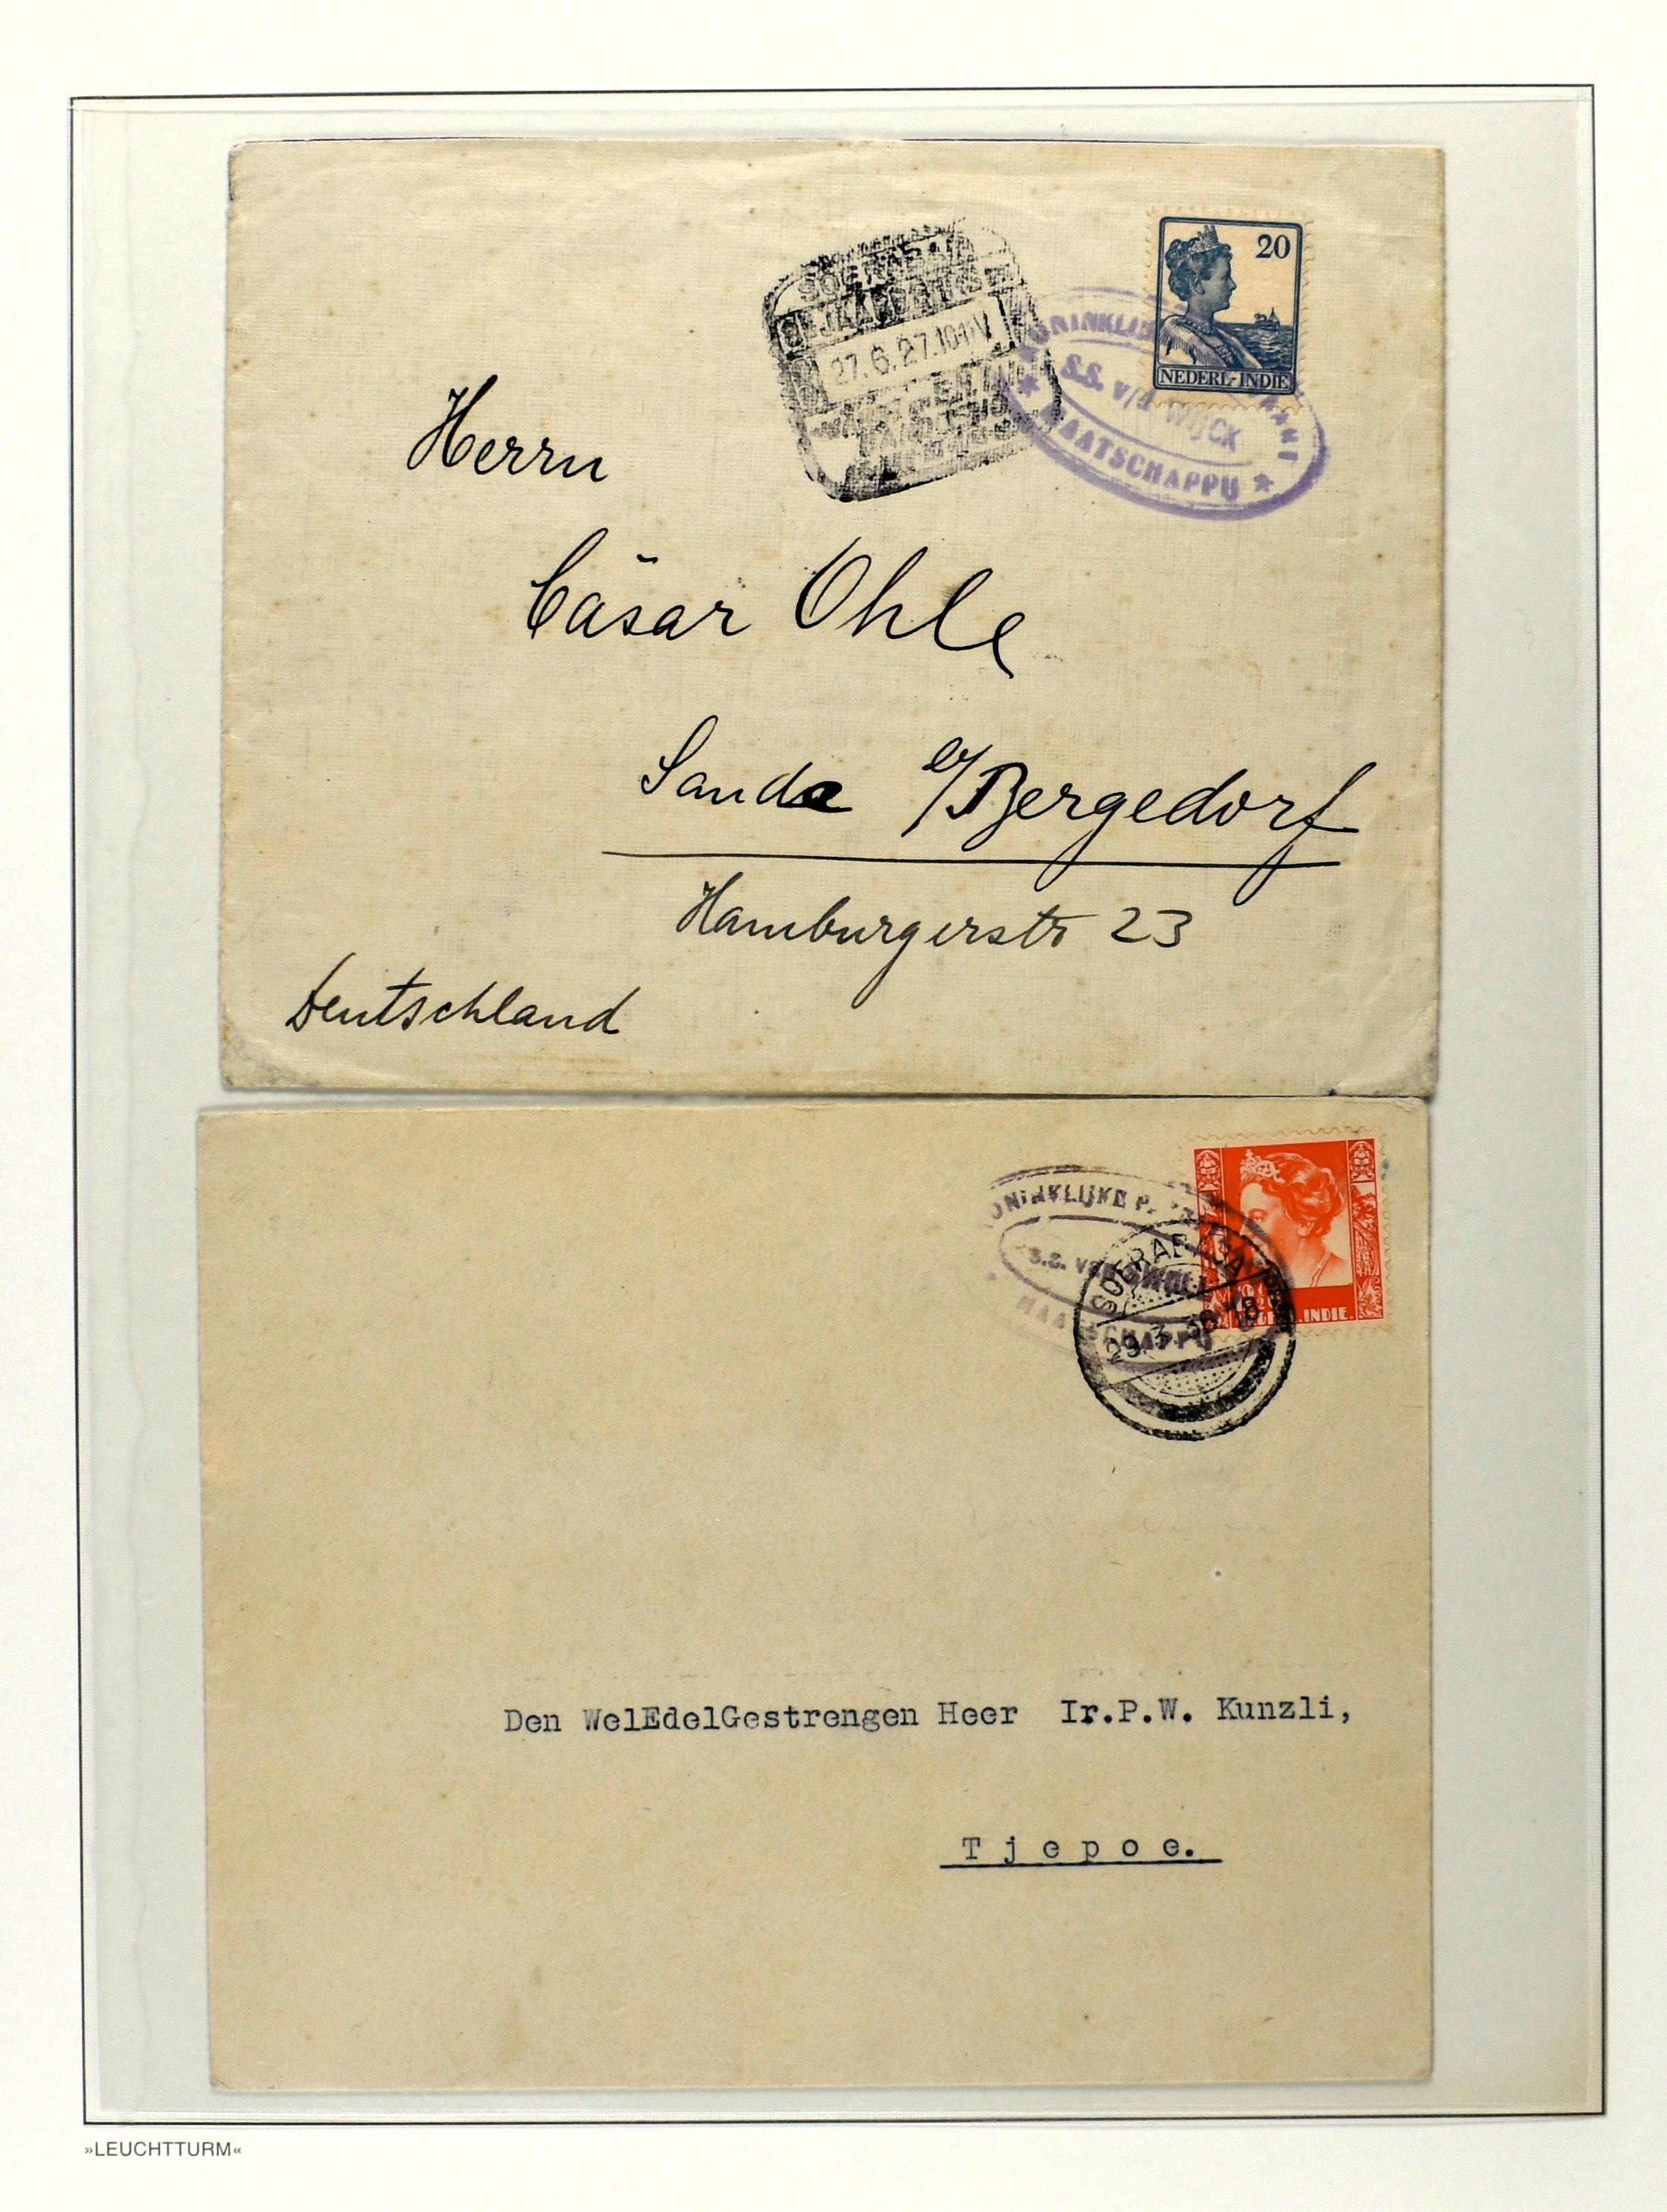 SOERABAJA
JAARBEURS
27.6.27.10-11V
20
NEDERL-INDIE
KONINKLIJKE
S.S. v/d WIJCK
MAATSCHAPPIJ
Herrn
Cäsar Ohle
Sande b/Bergedorf
Hamburgerstr 23
Deutschland
KONINKLIJKE
S.S. VAN
MAATSCHAPPIJ
SOERABAJA
29.3. 18
INDIE.
Den WelEdelGestrengen Heer Ir.P.W. Kunzli,
Tjepoe.
»LEUCHTTURM«